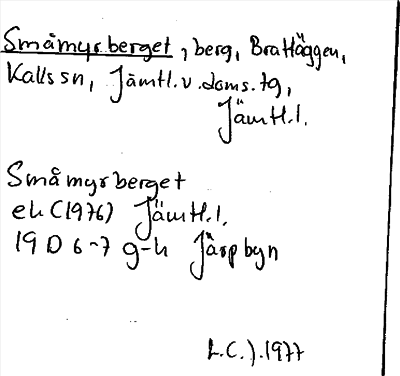 Småmyrberget, berg, Brattäggen,
Kalls sn, Jämtl.v.doms.tg,
Jämtl.l.
Småmyrberget
ek (1976) Jämtl.l.
19 D 6-7 g-h Järpbyn
L.C.J. 1977